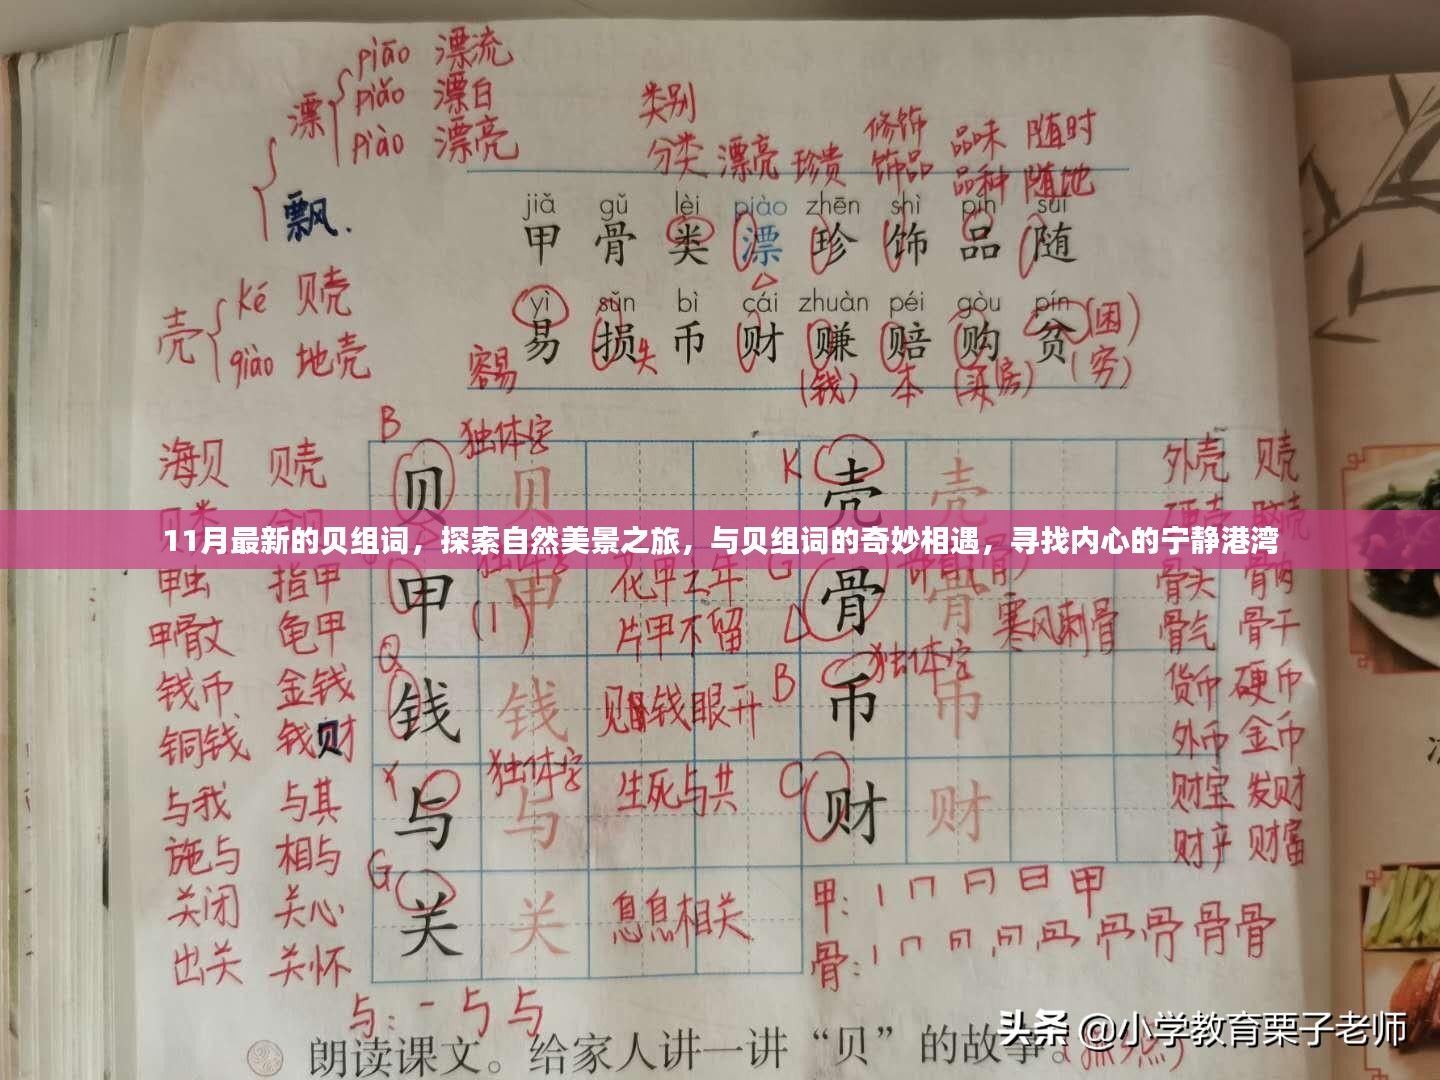 piāo 漂流
漂 piǎo 漂白
piào 漂亮
飘.
类别
分类 漂亮 珍贵 修饰 饰品 品味 品种 随时 随地
jiǎ gǔ lèi piào zhēn shì pǐn suí
甲 骨 类 漂 珍 饰 品 随
壳 ké 贝壳
qiào 地壳
yì sǔn bì cái zhuàn péi gòu pín
易 损 币 财 赚 赔 购 贫
容易 失 (钱) 本 (买房) (困) (穷)
B 独体字 K
海贝 贝壳 贝 贝 壳 壳 外壳 贝壳
11月最新的贝组词，探索自然美景之旅，与贝组词的奇妙相遇，寻找内心的宁静港湾
甲虫 指甲 甲 甲 花甲之年 G 骨 骨 骨头 骨肉
甲骨文 龟甲 (1) 片甲不留 寒风刺骨 骨气 骨干
Q 独体字
钱币 金钱 钱 钱 见钱眼开 B 币 币 货币 硬币
铜钱 钱财 外币 金币
Y 独体字
与我 与其 与 与 生死与共 C 财 财 财宝 发财
施与 相与 财产 财富
G
关闭 关心 关 关 息息相关 甲: 丨 冂 日 甲
出关 关怀 骨: 骨
与: 一 与 与
朗读课文。给家人讲一讲“贝”的故事。
头条 @小学教育栗子老师